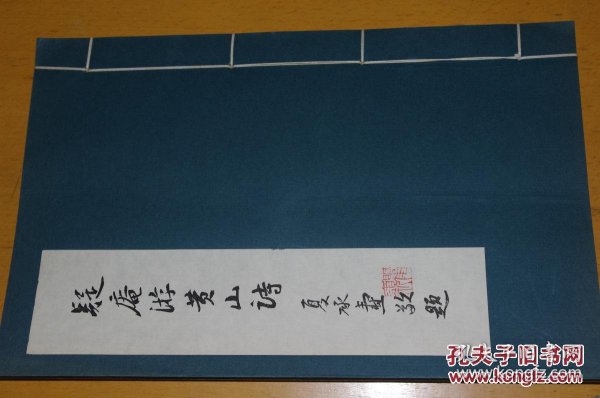 疑庵游黄山詩
夏承燾敬題
孔夫子旧书网
www.kongfz.com